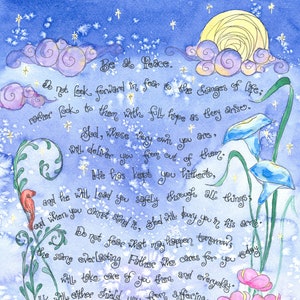 Be at Peace.
Do not look forward in fear to the changes of life;
rather look to them with full hope as they arise.
God, whose very own you are,
will deliver you from out of them.
He has kept you hitherto,
and he will lead you safely through all things;
and when you cannot stand it, God will bury you in his arms.
Do not fear what may happen tomorrow;
the same everlasting Father who cares for you today
will take care of you then and everyday.
He will either shield you from suffering